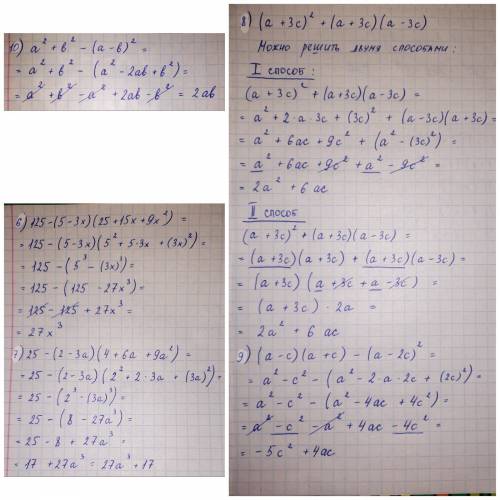 10) a² + b² - (a - b)² =
= a² + b² - (a² - 2ab + b²) =
= a² + b² - a² + 2ab - b² = 2ab
6) 125 - (5 - 3x)(25 + 15x + 9x²) =
= 125 - (5 - 3x)(5² + 5·3x + (3x)²) =
= 125 - (5³ - (3x)³) =
= 125 - (125 - 27x³) =
= 125 - 125 + 27x³ =
= 27x³
7) 25 - (2 - 3a)(4 + 6a + 9a²) =
= 25 - (2 - 3a)(2² + 2·3a + (3a)²) =
= 25 - (2³ - (3a)³) =
= 25 - (8 - 27a³) =
= 25 - 8 + 27a³ =
= 17 + 27a³ = 27a³ + 17
8) (a + 3c)² + (a + 3c)(a - 3c)
Можно решить двумя способами:
I способ:
(a + 3c)² + (a + 3c)(a - 3c) =
= a² + 2·a·3c + (3c)² + (a - 3c)(a + 3c) =
= a² + 6ac + 9c² + (a² - (3c)²) =
= a² + 6ac + 9c² + a² - 9c² =
= 2a² + 6ac
II способ
(a + 3c)² + (a + 3c)(a - 3c) =
= (a + 3c)(a + 3c) + (a + 3c)(a - 3c) =
= (a + 3c)(a + 3c + a - 3c) =
= (a + 3c) · 2a =
= 2a² + 6ac
9) (a - c)(a + c) - (a - 2c)² =
= a² - c² - (a² - 2·a·2c + (2c)²) =
= a² - c² - (a² - 4ac + 4c²) =
= a² - c² - a² + 4ac - 4c² =
= -5c² + 4ac